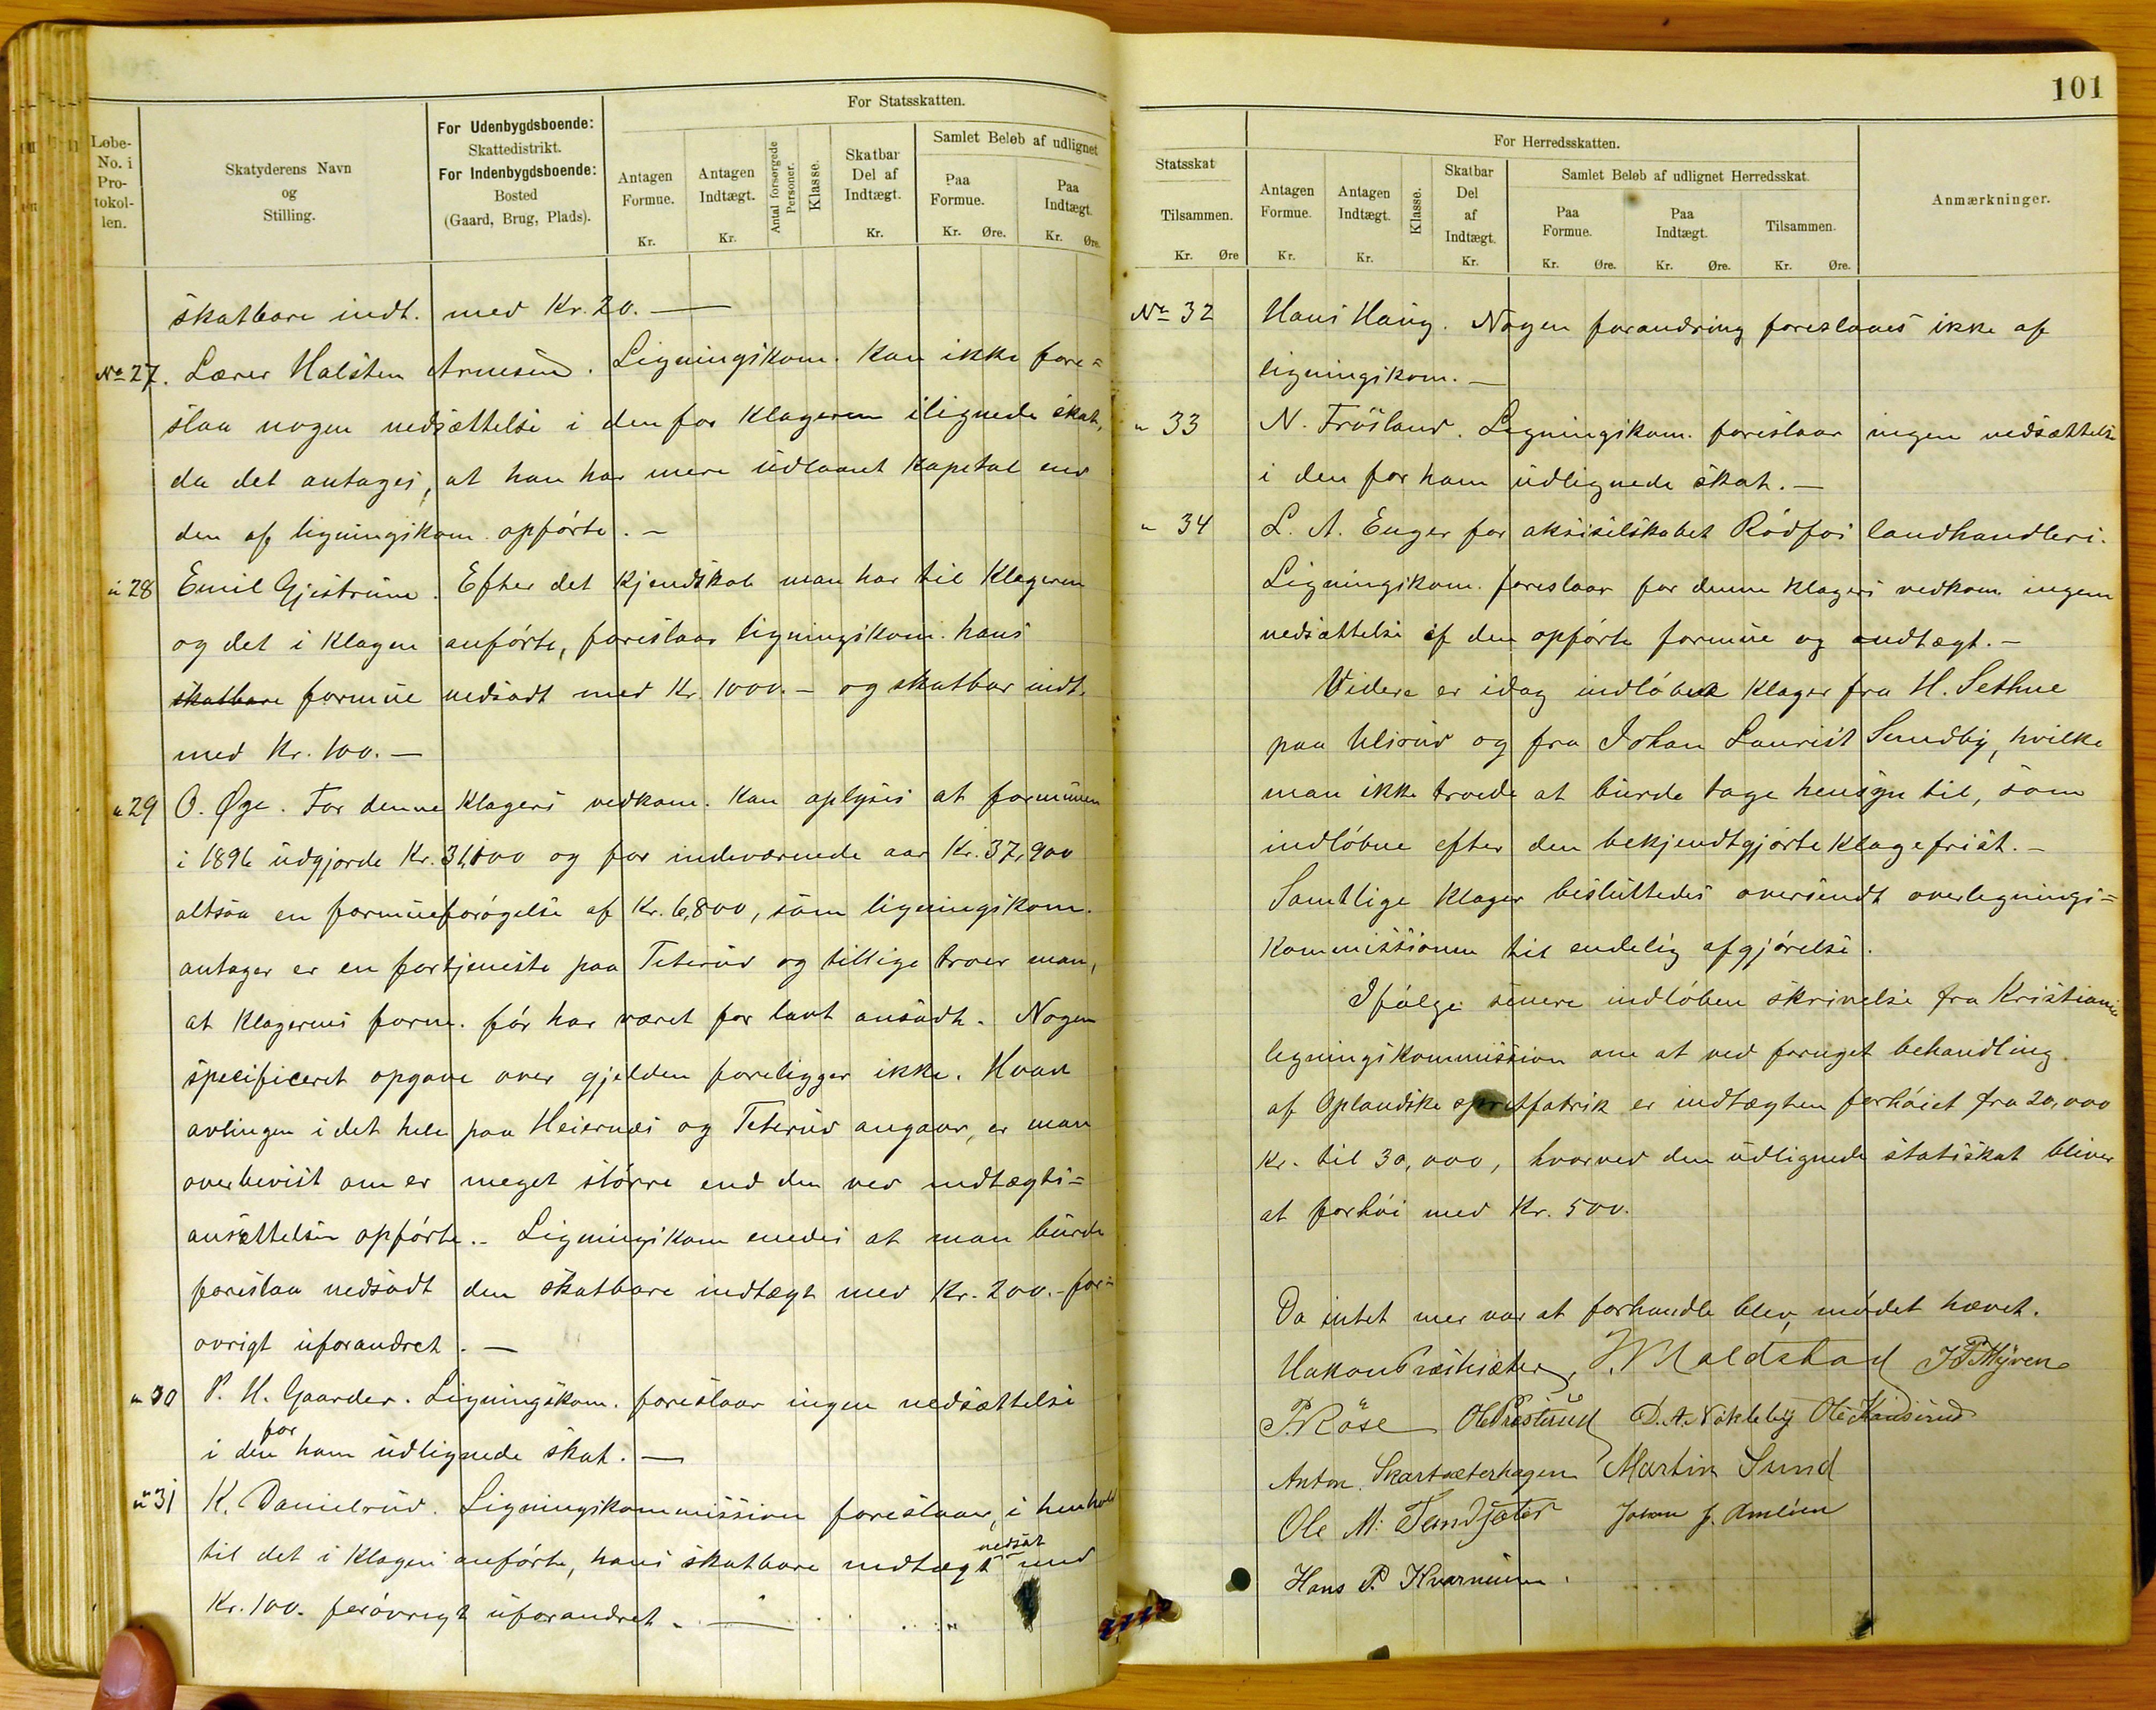 Løbe-
No. i
Pro-
tokol-
len.
Skatyderens Navn
og
Stilling.
For Udenbygdsboende:
Skattedistrikt.
For Indenbygdsboende:
Bosted
(Gaard, Brug, Plads).
For Statsskatten.
Antagen
Formue.
Kr.
Antagen
Indtægt.
Kr.
Antal forsørgede
Personer.
Klasse.
Skatbar
Del af
Indtægt.
Kr.
Samlet Beløb af udlignet
Paa
Formue.
Kr. Øre.
Paa
Indtægt.
Kr. Øre.
skatbare indt. med Kr. 20. —
No 27. Lærer Halsten Arnesen. Ligningskom. kan ikke fore=
slaa nogen nedsættelse i den for klageren ilignede skat,
da det antages, at han har mere udlaant kapital end
den af ligningskom. opførte. —
" 28 Emil Gjestrum. Efter det kjendskab man har til klageren
og det i klagen anførte, foreslaar ligningskom. hans
skatbare formue nedsadt med Kr. 1000. — og skatbar indt.
med Kr. 100. —
" 29 O. Øye. For denne klagers vedkom. kan oplyses at formuen
i 1896 udgjorde Kr. 31,100 og for indeværende aar Kr. 37,900
altsaa en formueforøgelse af Kr. 6,800, som ligningskom.
antager er en fortjeneste paa Teterud og tillige troer man,
at klagerens form. før har været for lavt ansadt. Nogen
specificeret opgave over gjelden foreligger ikke. Hvad
avlingen i det hele paa Heiernæs og Teterud angaar, er man
overbevist om er meget större end den ved indtægts=
ansættelsen opførte. - Ligningskom enedes at man burde
foreslaa nedsadt den skatbare indtægt med Kr. 200. - for=
øvrigt uforandret. —
" 30 P. H. Gaarder. Ligningskom. foreslaar ingen nedsættelse
i den for ham udlignede skat. —
" 31 K. Danielrud. Ligningskommission foreslaar, i henhold
til det i klagen anførte, hans skatbare indtægt nedsat med
Kr. 100. forøvrigt uforandret. —
101
Statsskat
Tilsammen.
Kr. Øre
For Herredsskatten.
Antagen
Formue.
Kr.
Antagen
Indtægt.
Kr.
Klasse.
Skatbar
Del
af
Indtægt.
Kr.
Samlet Beløb af udlignet Herredsskat.
Paa
Formue.
Kr. Øre.
Paa
Indtægt.
Kr. Øre.
Tilsammen.
Kr. Øre.
Anmærkninger.
No 32 Hans Haug. Nogen forandring foreslaaes ikke af
ligningskom. —
" 33 N. Fröisland. Ligningskom. foreslaar ingen nedsættelse
i den for ham udlignede skat. —
" 34 L. A. Enger for aksieselskabet Rödfos landhandleri.
Ligningskom. foreslaar for denne klagers vedkom. ingen
nedsættelse af den opførte formue og indtægt. —
Videre er idag indløbet klager fra H. Sethne
paa Ulsrud og fra Johan Laurist Sundby, hvilke
man ikke troede at burde tage hensyn til, som
indløbne efter den bekjendtgjørte klagefrist. —
Samtlige klager besluttedes oversendt overlignings=
kommissionen til endelig afgjørelse.
Ifølge senere indløben skrivelse fra Kristiania
ligningskommission om at ved fornyet behandling
af Oplandske spritfabrik er indtægten forhöiet fra 20,000
Kr. til 30,000, hvorved den udlignede statsskat bliver
at forhöi med Kr. 500.
Da intet mer var at forhandle blev mødet hævet.
Hakon Præstesæter, Maldstad
P. Röse Ole Præsterud D. A. Nökleby
Anton Skartsæterhagen Martin Sund
Ole M. Johan J.
Hans P. Kvarnum.